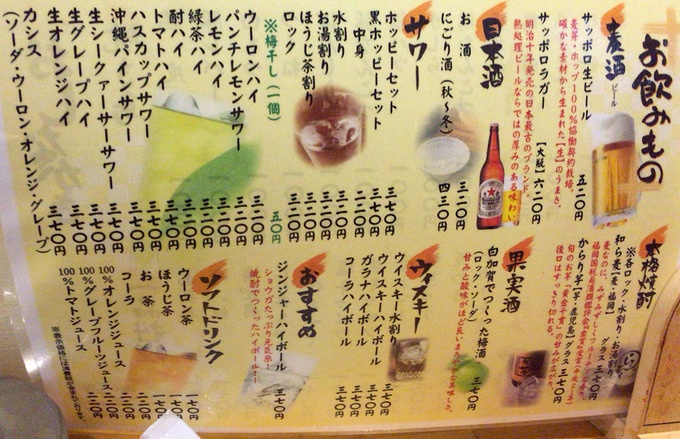 お飲みもの
麦酒
ビール
サッポロ生ビール 五二〇円
麦芽・ホップ100%協働契約栽培。
確かな素材から生まれた【生】のうまさ。
サッポロラガー 【大瓶】 六二〇円
明治十年発売の日本最古のブランド。
熱処理ビールならではの厚みのある味わい。
日本酒
お酒 三二〇円
にごり酒(秋〜冬) 四三〇円
サワー
ホッピーセット 三七〇円
黒ホッピーセット 三七〇円
中身
水割り 三二〇円
お湯割り 三二〇円
ほうじ茶割り 三二〇円
ロック
※梅干し(一個) 五〇円
ウーロンハイ 三二〇円
パンチレモンサワー 三二〇円
レモンハイ
緑茶ハイ
酎ハイ
トマトハイ 三七〇円
ハスカップサワー 三七〇円
沖縄パインサワー 三七〇円
生シークァーサーサワー 三七〇円
生グレープハイ 三七〇円
生オレンジハイ 三七〇円
カシス 三七〇円
(ソーダ・ウーロン・オレンジ・グレープ)
本格焼酎
※各ロック・水割り・お湯割り
和ら麦【麦・福岡】 グラス 三七〇円
からり芋【芋・鹿児島】 グラス 三七〇円
旬のお芋「黄金千貫」の甘みが広がり、
後口はすっきり切れる。
果実酒
白加賀でつくった梅酒 三七〇円
(ロック・ソーダ)
甘みと酸味がほど良いまろやかな美味しさ。
ウィスキー
ウイスキー水割り 三七〇円
ウイスキーハイボール 三七〇円
ガラナハイボール 三七〇円
コーラハイボール 三七〇円
おすすめ
ジンジャーハイボール 三七〇円
ショウガたっぷり元気系!
焼酎でつくったハイボール!!
ソフトドリンク
ウーロン茶 一七〇円
ほうじ茶
お茶
コーラ
100%オレンジジュース 二二〇円
100%グレープフルーツジュース 二二〇円
100%トマトジュース 二二〇円
※表示価格には消費税が含まれております。